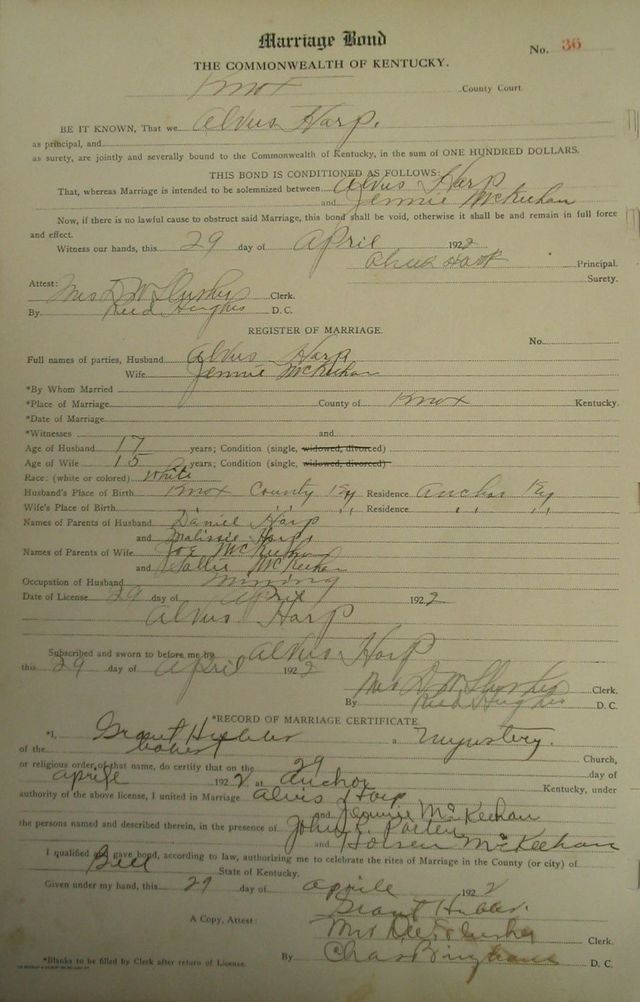 Marriage Bond
No. 36
THE COMMONWEALTH OF KENTUCKY.
Knox County Court
BE IT KNOWN, That we Alvus Harp.
as principal, and
as surety, are jointly and severally bound to the Commonwealth of Kentucky, in the sum of ONE HUNDRED DOLLARS.
THIS BOND IS CONDITIONED AS FOLLOWS:
That, whereas Marriage is intended to be solemnized between Alvus Harp
and Jennie McKeehan
Now, if there is no lawful cause to obstruct said Marriage, this bond shall be void, otherwise it shall be and remain in full force
and effect.
Witness our hands, this 29 day of April 1922
Principal.
Surety.
Attest:
Mrs D W Slusher Clerk.
By Reed Hughes D. C.
REGISTER OF MARRIAGE.
No.
Full names of parties, Husband Alvus Harp
Wife Jennie McKeehan
*By Whom Married
*Place of Marriage County of Knox Kentucky.
*Date of Marriage
*Witnesses and
Age of Husband 17 years; Condition (single, widowed, divorced)
Age of Wife 15 years; Condition (single, widowed, divorced)
Race: (white or colored) White
Husband's Place of Birth Knox County Ky Residence Anchor Ky
Wife's Place of Birth " " " Residence " "
Names of Parents of Husband Daniel Harp
and Malissie Harp
Names of Parents of Wife Joe McKeehan
and Sallie McKeehan
Occupation of Husband mining
Date of License 29 day of April 1922
Alvus Harp
Subscribed and sworn to before me by Alvus Harp
this 29 day of April 1922
Mrs D W Slusher Clerk.
By Reed Hughes D. C.
*RECORD OF MARRIAGE CERTIFICATE.
*I, Grant Hubbs a
of the Church,
or religious order of that name, do certify that on the 29 day of
aprile 1922 at Anchor Kentucky, under
authority of the above license, I united in Marriage Alvis Harp
and Jennie McKeehan
the persons named and described therein, in the presence of John
and McKeehan
I qualified and gave bond, according to law, authorizing me to celebrate the rites of Marriage in the County (or city) of
Bell State of Kentucky.
Given under my hand, this 29 day of aprile 1922
Grant Hubbs
A Copy, Attest: Mrs D W Slusher Clerk.
*Blanks to be filled by Clerk after return of License.
By Chas Bingham D. C.